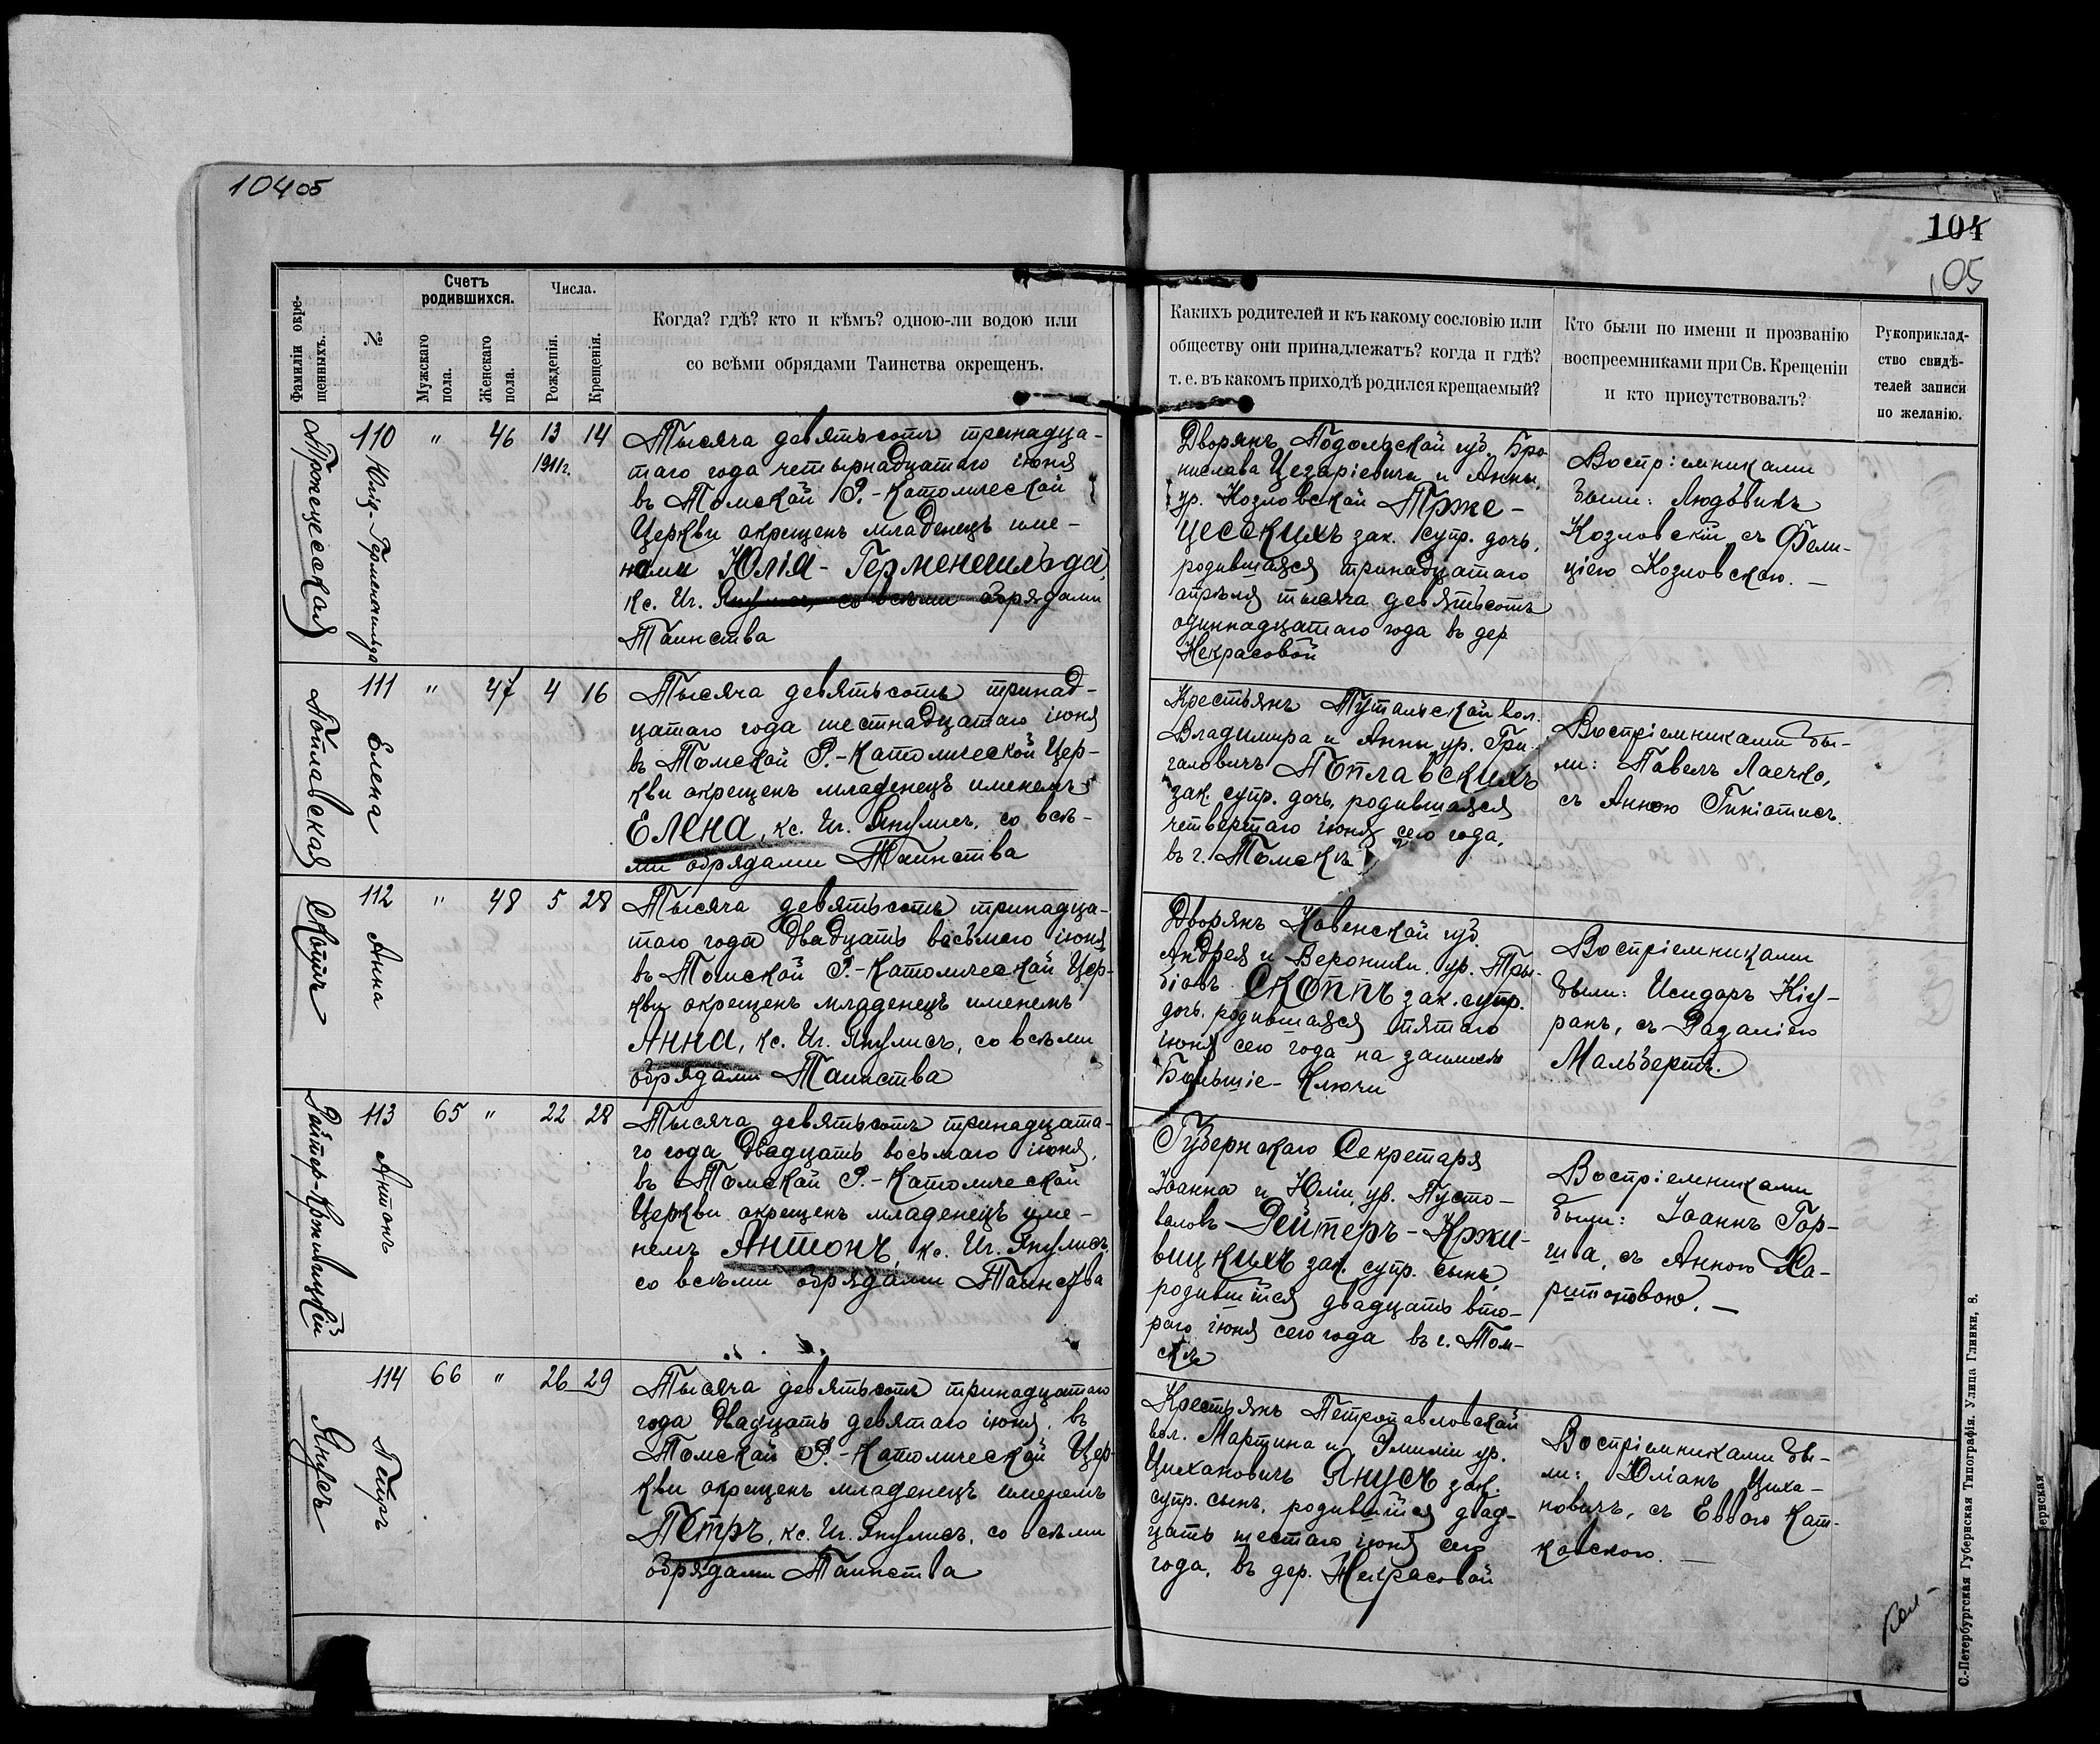 104об
104
105
Фамиліи окре-
щенныхъ.
№
Счетъ
родившихся.
Мужскаго
пола.
Женскаго
пола.
Числа.
Рожденія.
Крещенія.
Когда? гдѣ? кто и кѣмъ? одною-ли водою или
со всѣми обрядами Таинства окрещенъ.
Какихъ родителей и къ какому сословію или
обществу они принадлежатъ? когда и гдѣ?
т. е. въ какомъ приходѣ родился крещаемый?
Кто были по имени и прозванію
воспреемниками при Св. Крещеніи
и кто присутствовалъ?
Рукоприклад-
ство свидѣ-
телей записи
по желанію.
Тржецесская
110
Юлія-Герменегильда
" 46 13 14
1911г.
Тысяча девятьсотъ тринадца-
таго года четырнадцатаго іюня
въ Томской Р.-Католической
Церкви окрещенъ младенецъ име-
нами Юлія-Герменегильда,
кс. Иг. Янулисъ, со всѣми обрядами
Таинства
Дворянъ Подольской губ. Бро-
нислава Цезаріевича и Анны,
ур. Козловской Трже-
цесскихъ зак. супр. дочь,
родившаяся тринадцатаго
апрѣля тысяча девятьсотъ
одиннадцатаго года въ дер.
Некрасовой
Воспріемниками
были: Людвикъ
Козловскій съ Фели-
ціею Козловскою. —
Поплавская
111
Елена
" 47 4 16
Тысяча девятьсотъ тринад-
цатаго года шестнадцатаго іюня
въ Томской Р.-Католической Цер-
кви окрещенъ младенецъ именемъ
Елена, кс. Иг. Янулисъ, со всѣ-
ми обрядами Таинства
Крестьянъ Тутальской вол.
Владимира и Анны ур. Гри-
галовичъ Поплавскихъ
зак. супр. дочь, родившаяся
четвертаго іюня сего года,
въ г. Томскѣ
Воспріемниками бы-
ли: Павелъ Лаечко,
съ Анною Гинтотисъ.
Скоппъ
112
Анна
" 48 5 28
Тысяча девятьсотъ тринадца-
таго года двадцать восьмого іюня
въ Томской Р.-Католической Цер-
кви окрещенъ младенецъ именемъ
Анна, кс. Иг. Янулисъ, со всѣми
обрядами Таинства
Дворянъ Ковенской губ.
Андрея и Вероники, ур.
Скоппъ зак. супр.
дочь, родившаяся пятаго
іюня сего года на заимкѣ
Большіе-Ключи
Воспріемниками
были: Исидоръ Кіу-
ранъ, съ Розаліею
Мальбертъ.
Рейтеръ-Крживицкій
113
Антонъ
65 " 22 28
Тысяча девятьсотъ тринадцата-
го года двадцать восьмаго іюня,
въ Томской Р.-Католической
Церкви окрещенъ младенецъ име-
немъ Антонъ, кс. Иг. Янулисъ,
со всѣми обрядами Таинства
Губернскаго Секретаря
Іоанна и Юліи ур. Пусто-
валовъ Рейтеръ-Кржи-
вицкихъ зак. супр. сынъ,
родившійся двадцать вто-
раго іюня сего года въ г. Том-
скѣ
Воспріемниками
были: Іоаннъ Гор-
шва, съ Анною Ха-
ритоновою. —
Янусъ
114
Петръ
66 " 26 29
Тысяча девятьсотъ тринадцатаго
года двадцать девятаго іюня, въ
Томской Р.-Католической Цер-
кви окрещенъ младенецъ именемъ
Петръ, кс. Иг. Янулисъ, со всѣми
обрядами Таинства
Крестьянъ Петропавловской
вол. Мартина и Эмиліи ур.
Цихановичъ Янусъ зак.
супр. сынъ, родившійся двад-
цать шестаго іюня сего
года, въ дер. Некрасовой
Воспріемниками бы-
ли: Юліанъ Циха-
новичъ, съ Еввою Кат-
ковскою. —
С.-Петербургская Губернская Типографія. Улица Глинки, 8.